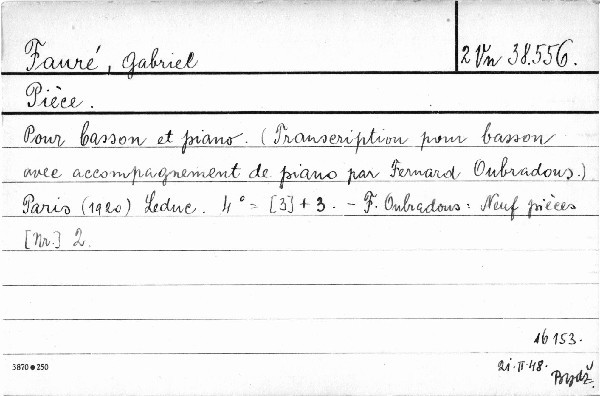 Fauré, Gabriel
2 Vn 38.556.
Pièce.
Pour basson et piano. (Transcription pour basson
avec accompagnement de piano par Fernard Oubradous.)
Paris (1920) Leduc. 4° = [3] + 3. – F. Oubradous: Neuf pièces
[Nr.] 2.
16153.
3870●250
21.II.48.